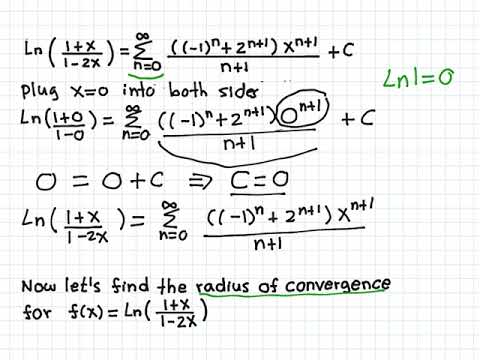 Ln(1+x/1-2x) = ∞∑n=0 ((-1)^n + 2^(n+1)) x^(n+1) / n+1 + C
plug x=0 into both sides
Ln 1 = 0
Ln(1+0/1-0) = ∞∑n=0 ((-1)^n + 2^(n+1)) 0^(n+1) / n+1 + C
0 = 0 + C ⇒ C = 0
Ln(1+x/1-2x) = ∞∑n=0 ((-1)^n + 2^(n+1)) x^(n+1) / n+1
Now let's find the radius of convergence
for f(x) = Ln(1+x/1-2x)